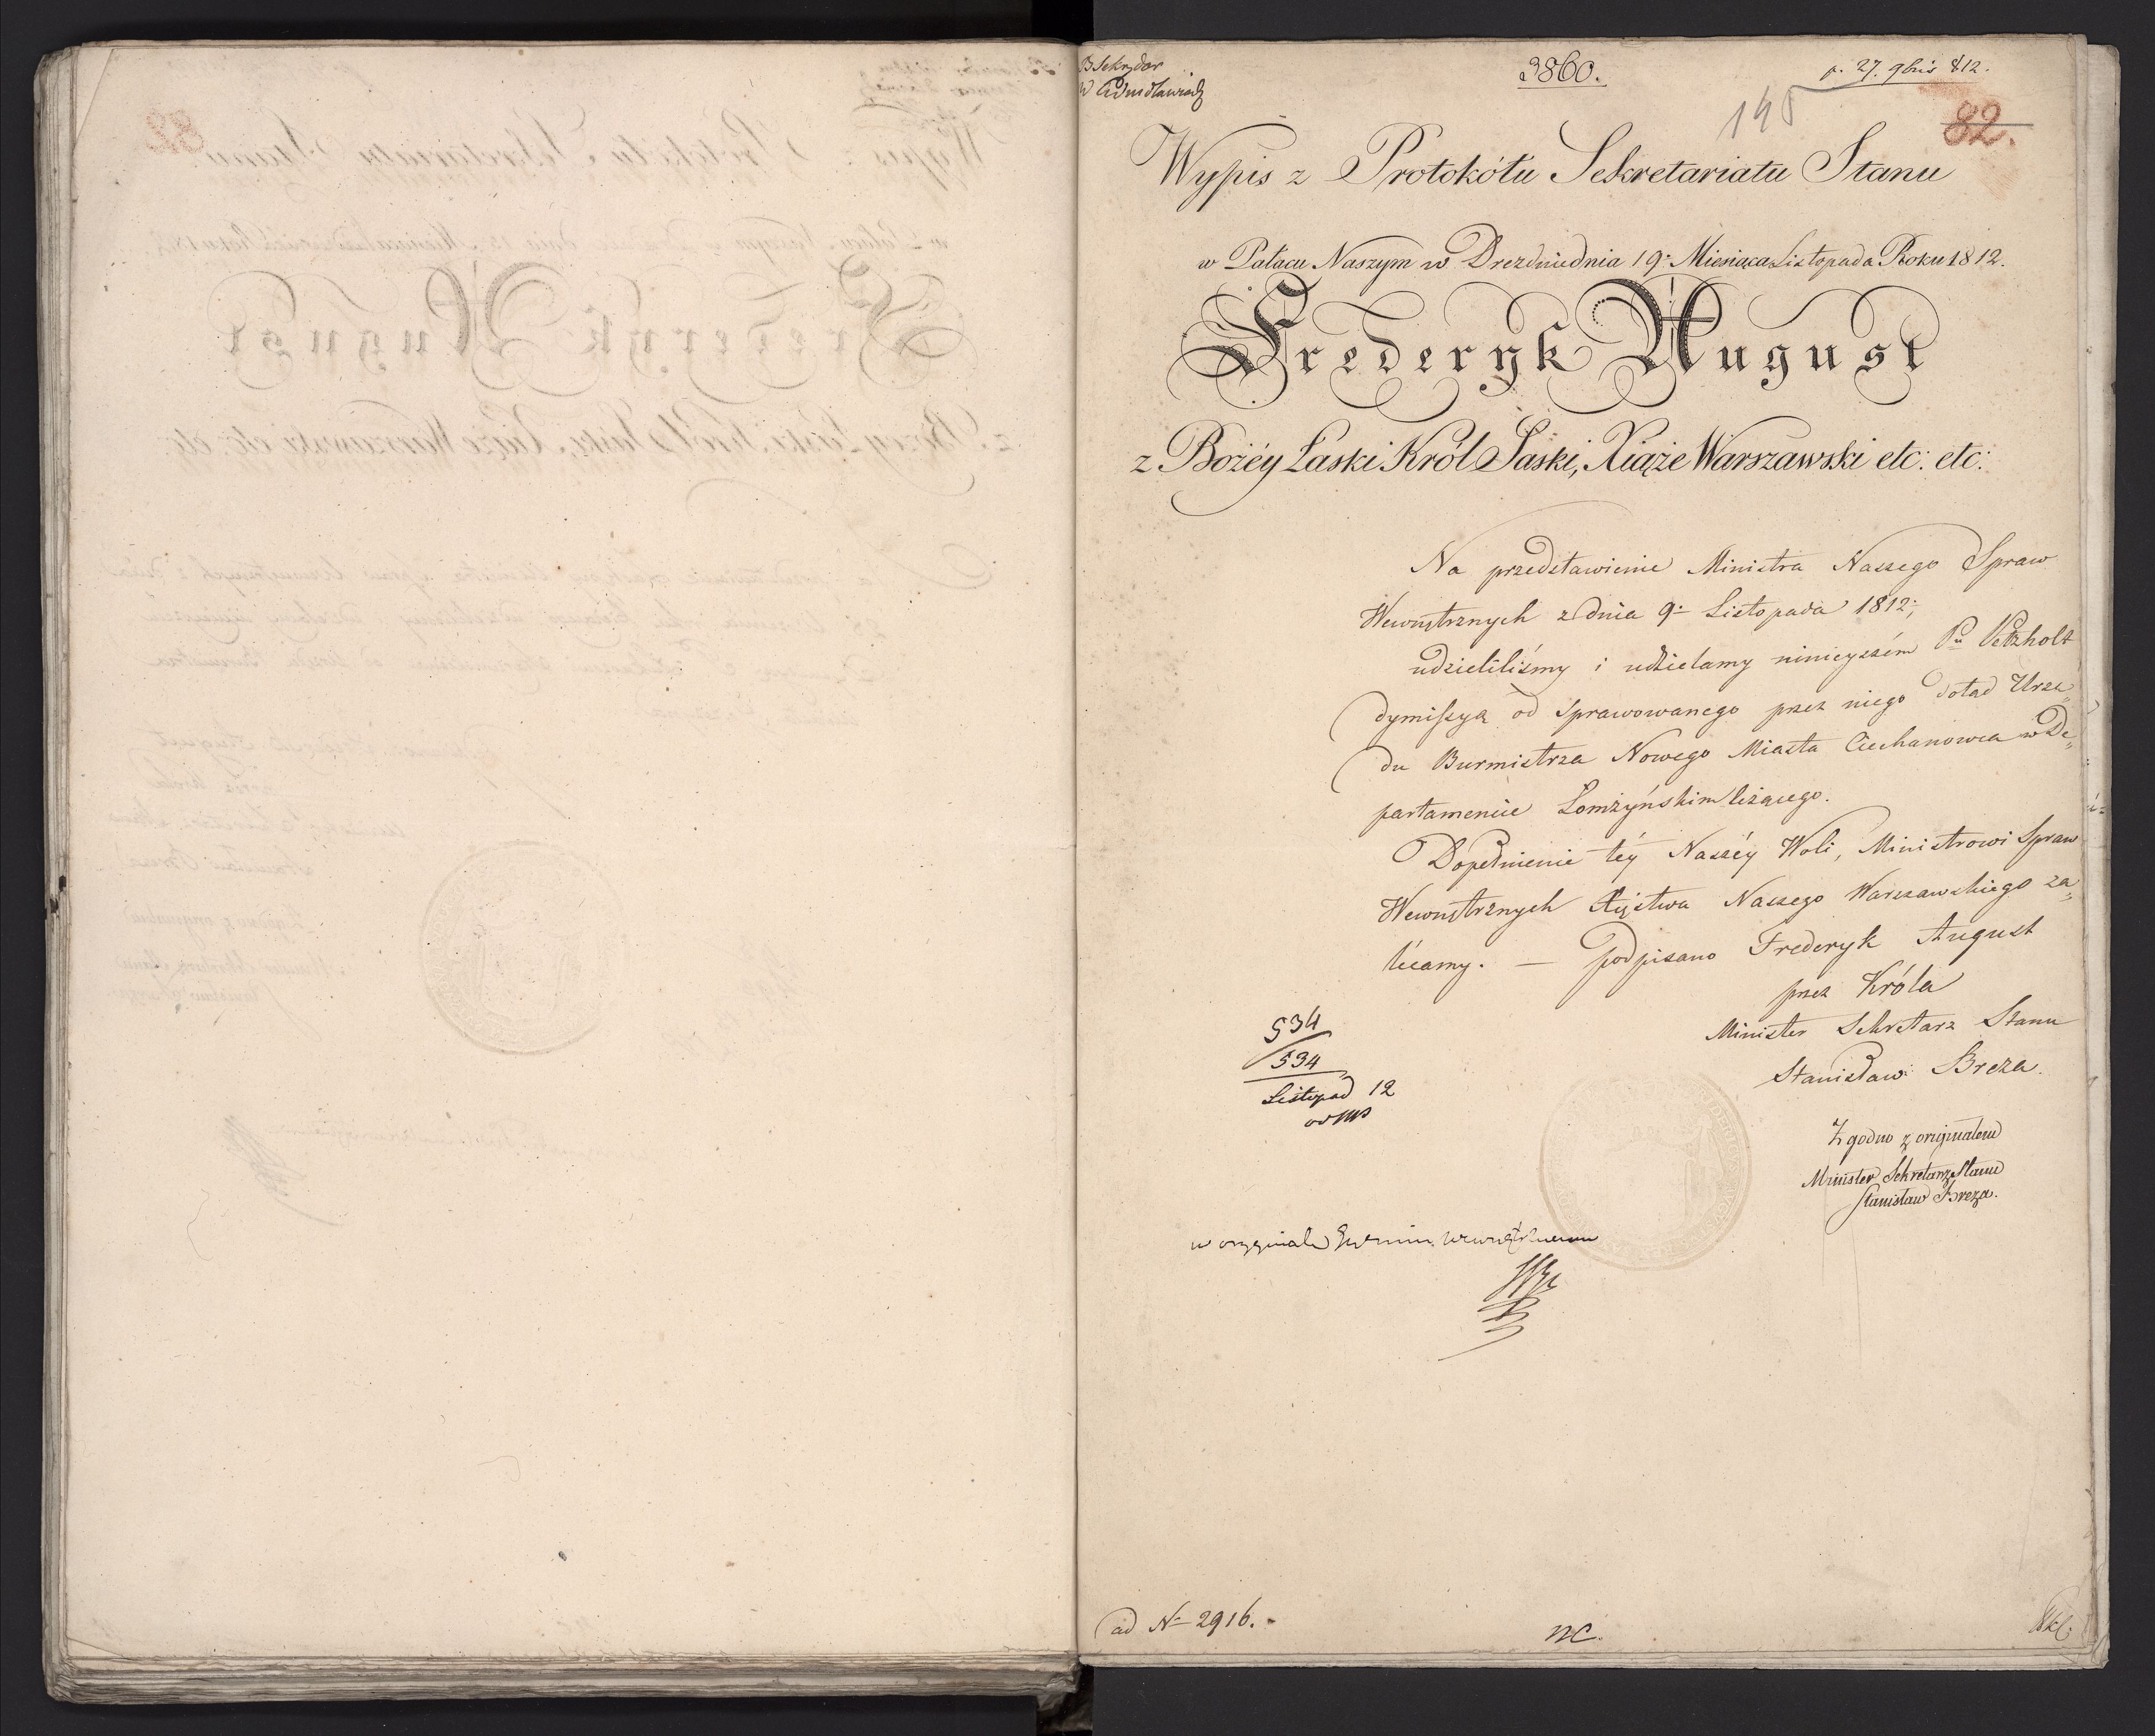 3860.
p. 27. 9bris 812.
145
82.
Wypis z Protokółu Sekretariatu Stanu
w Pałacu Naszym w Dreznie dnia 19: Miesiąca Listopada Roku 1812.
Frederyk August
z Bożéy Łaski Król Saski, Xiąże Warszawski etc: etc:
Na przedstawienie Ministra Naszego Spraw
Wewnętrznych z dnia 9: Listopada 1812;
udzieliliśmy i udzielamy ninieyszém Pu Vetzholt
dymissyą od sprawowanego przez niego dotąd Urzę„
du Burmistrza Nowego Miasta Ciechanowca w De„
partamencie Łomżyńskim leżącego.
Dopełnienie téy Naszéy Woli, Ministrowi Spraw
Wewnętrznych Xięstwa Naszego Warszawskiego za„
lécamy. — Podpisano Frederyk August
przez Króla
Minister Sekretarz Stanu
Stanisław Breza.
534
534
Listopad 12
Zgodno z oryginałem
Minister Sekretarz Stanu
Stanisław Breza.
w oryginale
ad N 2916.